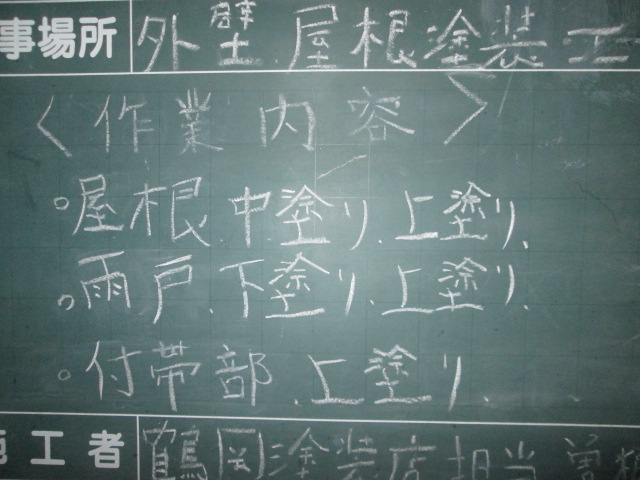 事場所 外壁.屋根塗装工
<作業内容>
○屋根.中塗り.上塗り.
○雨戸.下塗り.上塗り.
○付帯部.上塗り.
施工者 鶴岡塗装店担当 曽